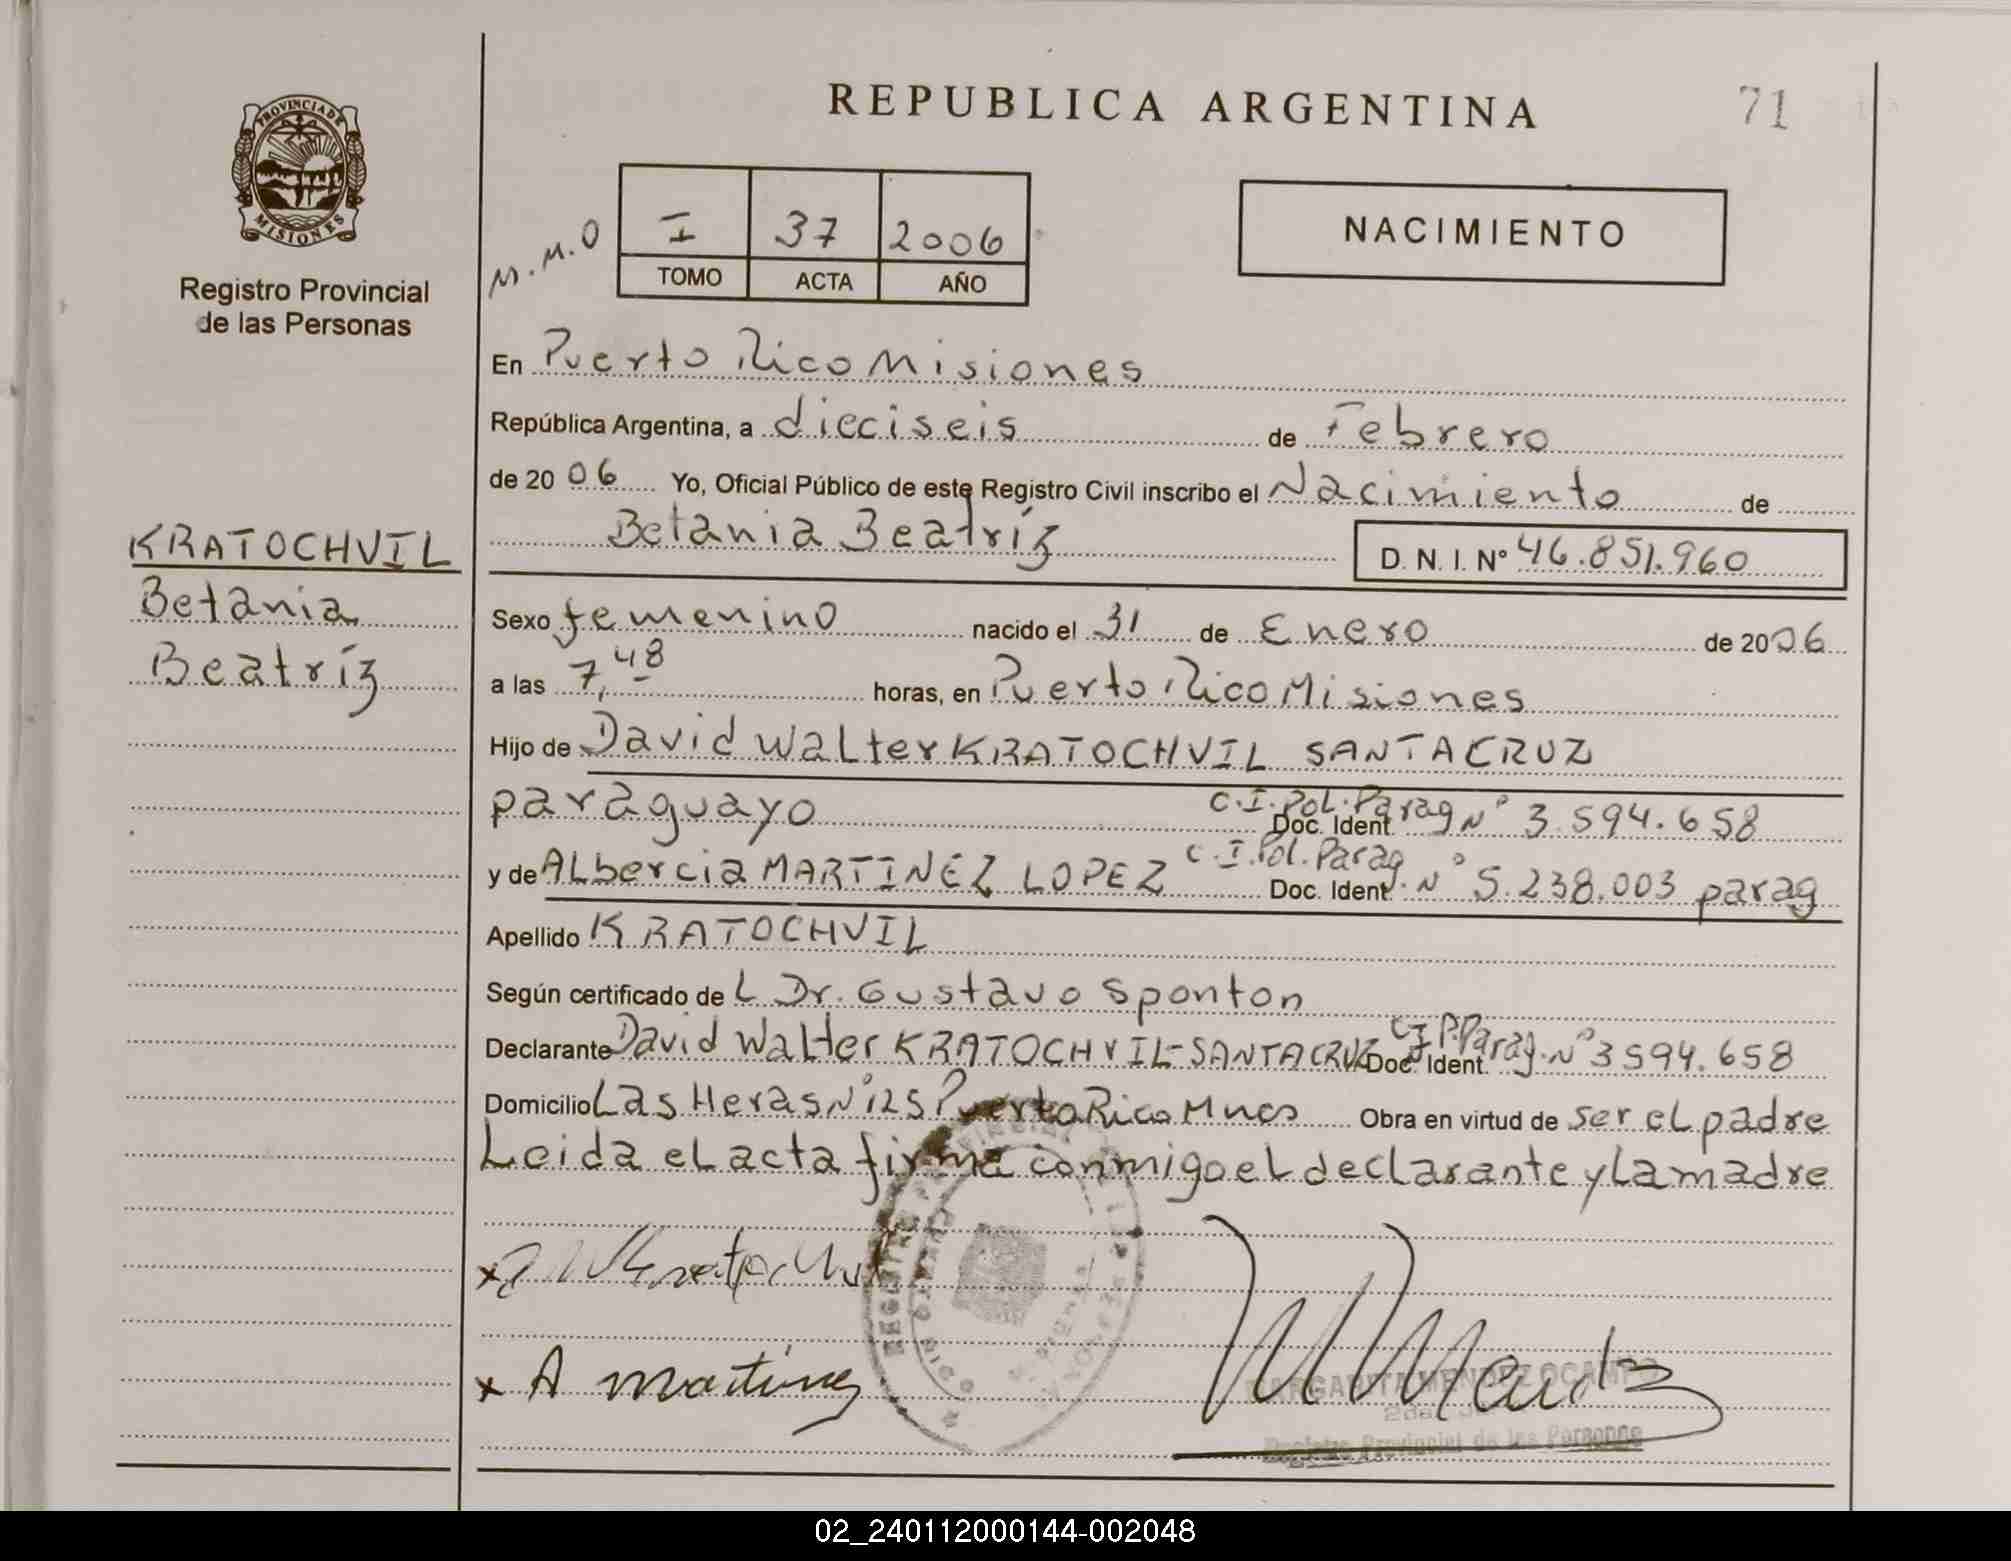 REPUBLICA ARGENTINA
71
PROVINCIA DE
MISIONES
Registro Provincial
de las Personas
M.M.O
I 37 2006
TOMO ACTA AÑO
NACIMIENTO
En Puerto Rico Misiones
República Argentina, a dieciseis de Febrero
de 2006 Yo, Oficial Público de este Registro Civil inscribo el Nacimiento de
Betania Beatríz D. N. I. Nº 46.851.960
KRATOCHVIL
Betania
Beatríz
Sexo femenino nacido el 31 de Enero de 2006
a las 7,48 horas, en Puerto Rico Misiones
Hijo de David Walter KRATOCHVIL SANTACRUZ
paraguayo C.I.Pol.Parag Doc. Ident. Nº 3.594.658
y de ALbercia MARTINEZ LOPEZ C.I.Pol.Parag. Doc. Ident. Nº 5.238.003 parag
Apellido KRATOCHVIL
Según certificado de L Dr. Gustavo Sponton
Declarante David Walter KRATOCHVIL-SANTACRUZ Doc. Ident. C.I P.Parag. Nº 3594.658
Domicilio Las Heras Nº 125 Puerto Rico Mnes Obra en virtud de ser el padre
Leida el acta firma conmigo el declarante y La madre
x
x A Martinez
MARGARITA MENDEZ OCAMPO
Registro Provincial de las Personas
02_240112000144-002048